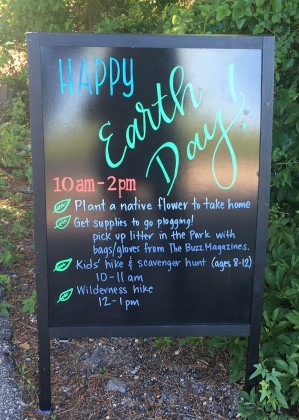 HAPPY
Earth
Day!
10am-2pm
Plant a native flower to take home
Get supplies to go plogging!
pick up litter in the Park with
bags/gloves from The Buzz Magazines.
Kids' hike & scavenger hunt (ages 8-12)
10-11 am
Wilderness hike
12-1pm